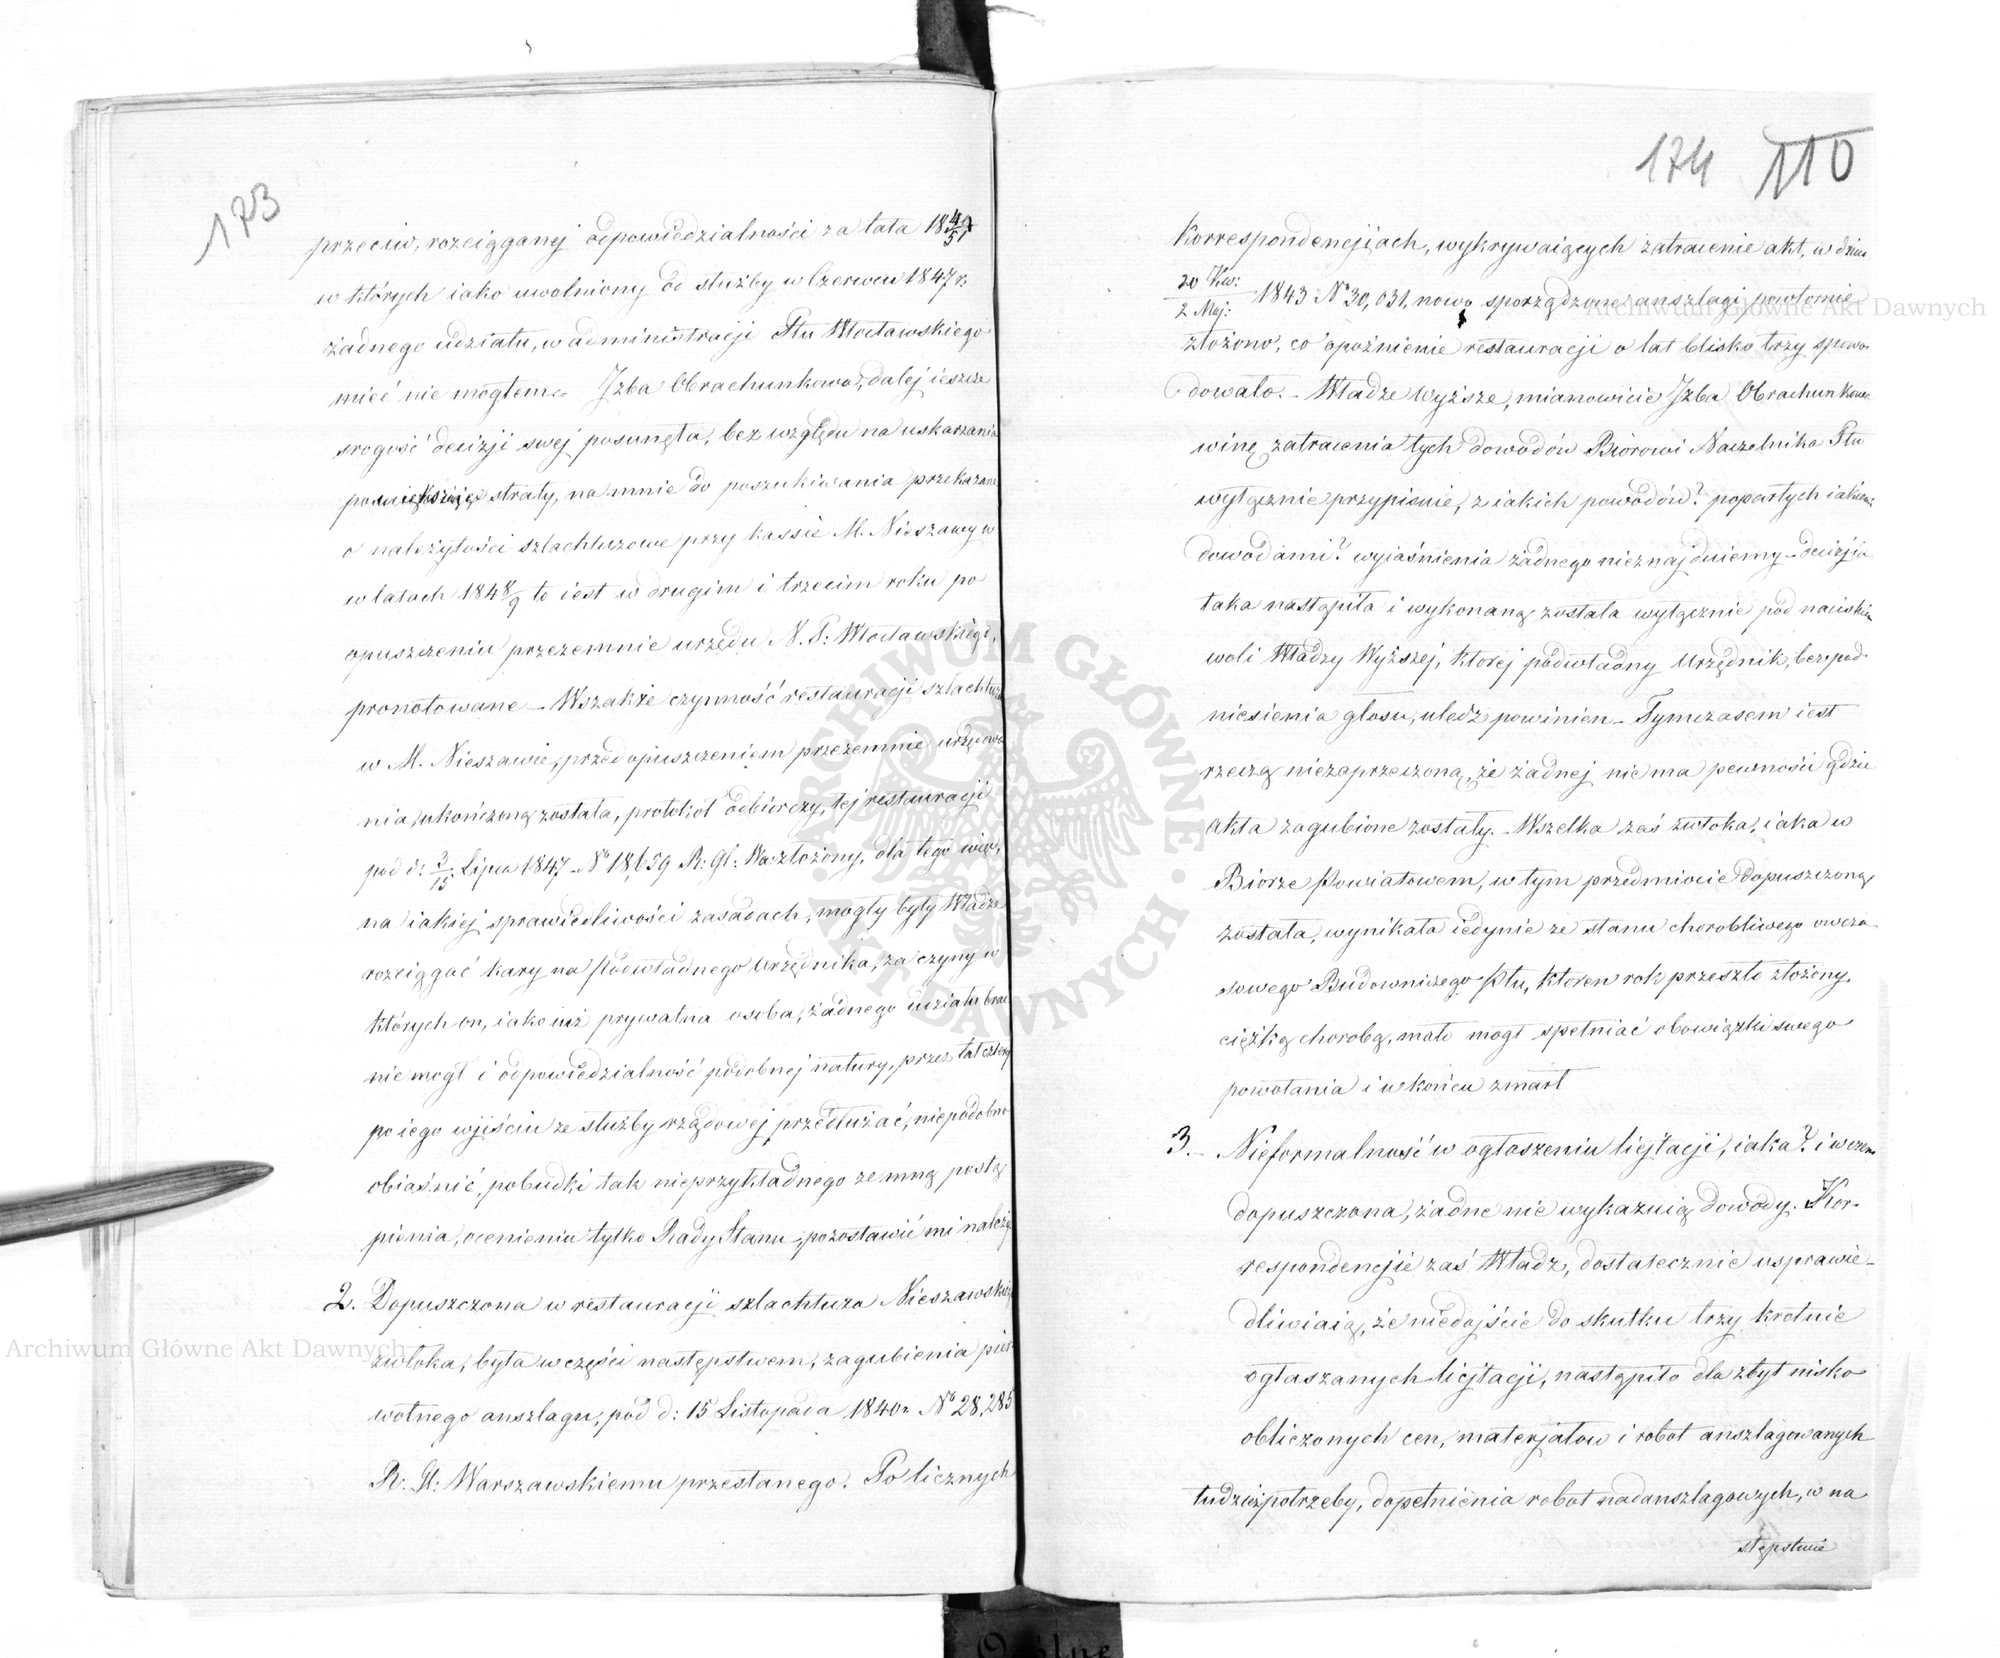 173
przeciw, rozciągganej odpowiedzialności za lata 1849/51
w których iako uwolniony od służby w Czerwcu 1847 r.
żadnego udziału, w administracji Ptu Włocławskiego
mieć nie mogłem. Jzba Obrachunkowa, dalej ieszcze
srogość decizji swej posunęła, bez względu na uskarżania
straty, na mnie do poszukiwania przekazane
o należytości szlachtuzowe przy kassie M. Nieszawy w
w latach 1848/9 to iest w drugim i trzecim roku po
opuszczeniu przezemnie urzędu N. P: Włocławskiego,
pronotowane – Wszakże czynność restauracji szlachtuza
w M. Nieszawie, przed opuszczeniem przezemnie urzędowa
nia, ukończoną została, protokół odbiorczy, tej restauracji
pod d: 3/15 Lipca 1847 No 18,659 R: Gl: Wa: złożony, dla tego więc,
na iakiej sprawiedliwości zasadach, mogły były Władze
rozciągać kary na Podwładnego Urzędnika, za czyny w
których on, iako iuż prywatna osoba, żadnego udziału brać
nie mogł i odpowiedzialność podobnej natury, przez lat cztery
po iego wyjściu ze służby rządowej przedłużać, niepodobna
obiaśnić, pobudki tak nieprzykładnego ze mną postą
pienia, ocenieniu tylko Rady Stanu, pozostawić mi należy
2. Dopuszczona w restauracji szlachtuza Nieszawskiego
zwłoka, była w części następstwem, zagubienia pier
wotnego anszlagu, pod d: 15 Listopada 1840 r. No 28,285
R: Gl: Warszawskiemu przesłanego. Po licznych
174 110
Korrespondencjiach, wykrywaiących zatracenie akt, w dniu
20 Kw:/2 Maj: 1843 No 30,031, nowo sporządzone anszlagi powtornie
złożono, co opoźnienie restauracji o lat blisko trzy spowo-
dowało. – Władze Wyższe, mianowicie Jzba Obrachunkowa
winę zatracenia tych dowodów Biórowi Naczelnika Ptu
wyłącznie przypisuie, z iakich powodów? popartych iakiemi
dowodami? wyjaśnienia żadnego nieznajduiemy – decizjia
taka nastąpiła i wykonaną została wyłącznie pod naciskiem
woli Władzy Wyższej, ktorej podwładny Urzędnik, bez pod-
niesienia głosu, uledz powinien – Tymczasem iest
rzeczą niezaprzeczoną, że żadnej nie ma pewności gdzie
akta zagubione zostały. – Wszelka zaś zwłoka, iaka w
Biórze Powiatowem, w tym przedmiocie dopuszczoną
została, wynikała iedynie ze stanu chorobliwego owcza-
sowego Budowniczego Ptu, ktoren rok przeszło złożony
ciężką chorobą, mało mogł spełniać obowiązki swego
powołania i w końcu zmarł
3. – Nieformalność w ogłoszeniu licjtacji, iaka? i w czem
dopuszczona, żadne nie wykazuią dowody. Kor-
respondencjie zaś Władz, dostatecznie usprawie-
dliwiaią, że niedojście do skutku trzy krotnie
ogłaszanych licjtacji, nastąpiło dla zbyt nisko
obliczonych cen, materjałow i robot anszlagowanych
tudzież potrzeby, dopełnienia robot nadanszlagowych, w na
stępstwie